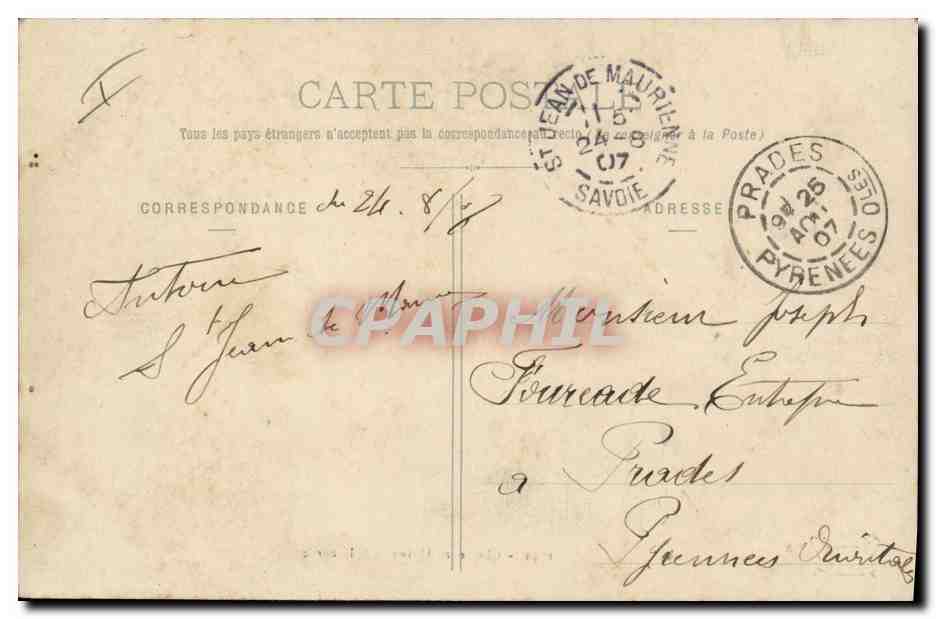 CARTE POSTALE
Tous les pays étrangers n'acceptent pas la correspondance au recto (Se renseigner à la Poste)
ST JEAN DE MAURIENNE
15
24-8
07
SAVOIE
PRADES
9E 25
AO
07
PYRENEES OLES
CORRESPONDANCE du 24. 8/07
ADRESSE
Antoine
St Jean de Maurne
CPAPHIL
Monsieur Joseph
Fourcade, Entrepr
a Prades
Pyrennees Orientales